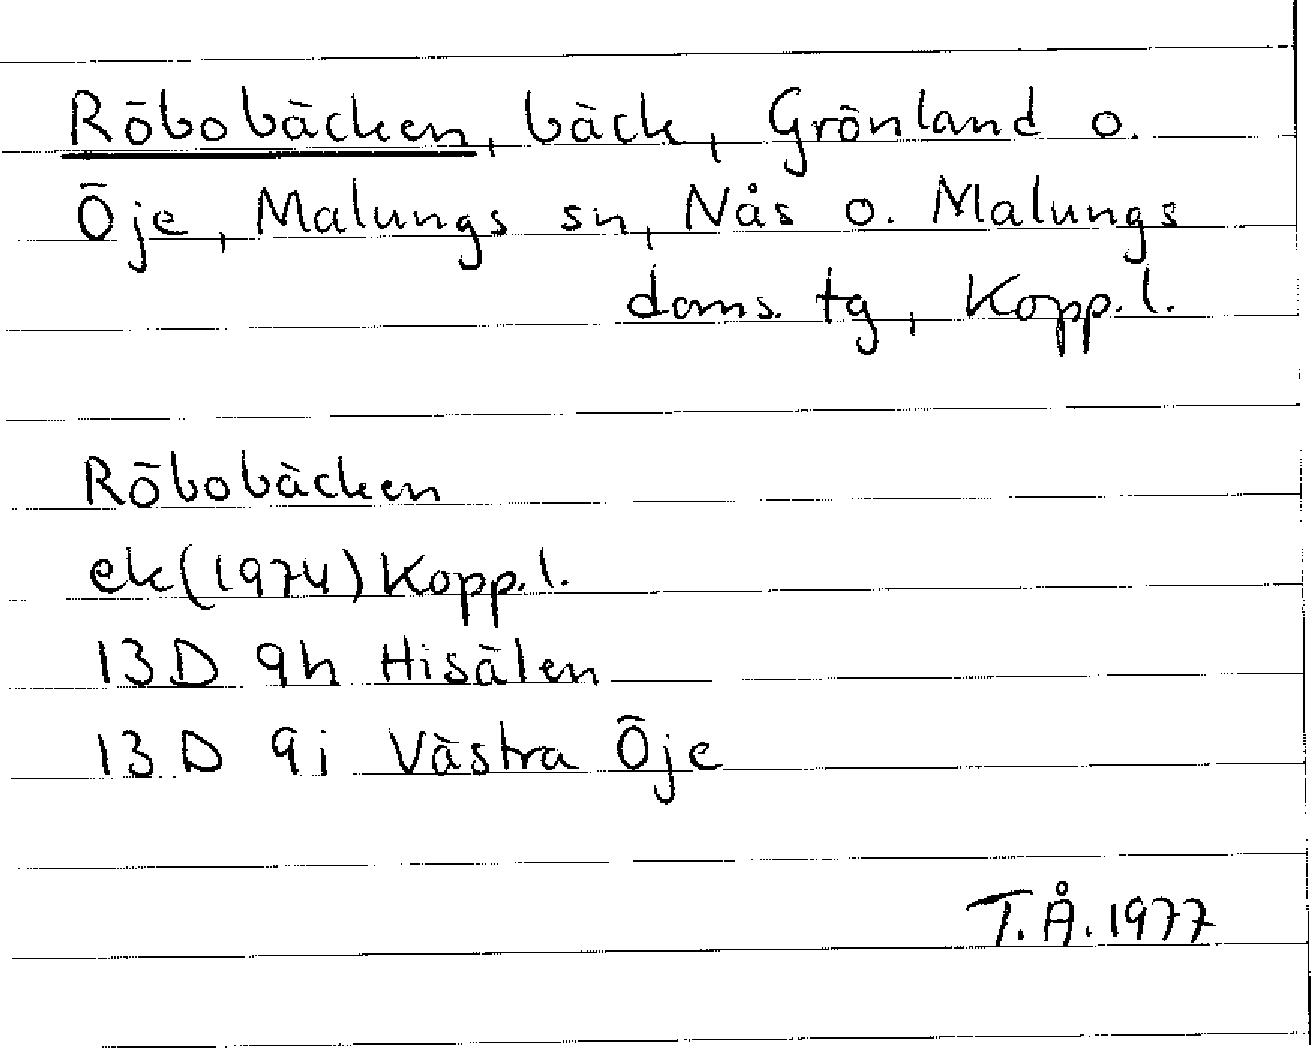 Röbobäcken, bäck, Grönland o.
Öje, Malungs sn, Nås o. Malungs
doms. tg, Kopp.l.
Röbobäcken
ek(1974) Kopp.l.
13 D 9h Hisälen
13 D 9i Västra Öje
T.Å. 1977